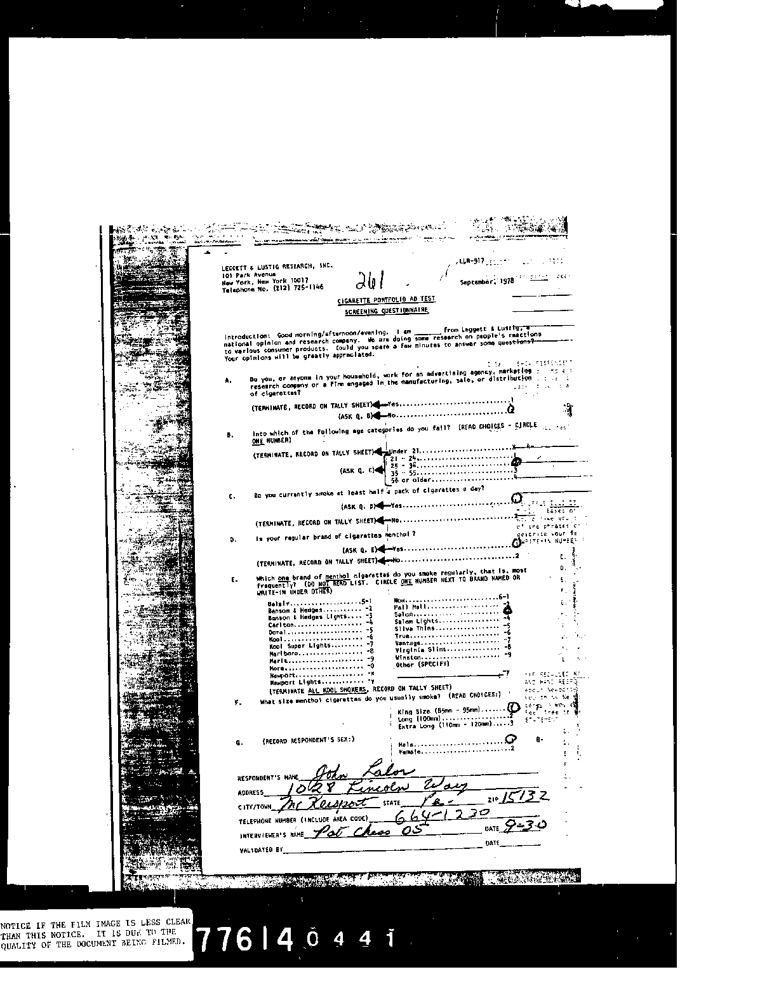 LEGGETT & LUSTIG RESEARCH, INC.
101 Park Avenue
New York, New York 10017
Telephone No. (212) 725-1146
261
LLR-917
September, 1978
CIGARETTE PORTFOLIO AD TEST
SCREENING QUESTIONNAIRE
Introduction: Good morning/afternoon/evening. I am ______ from Leggett & Lustig, a
national opinion and research company. We are doing some research on people's reactions
to various consumer products. Could you spare a few minutes to answer some questions?
Your opinions will be greatly appreciated.
A. Do you, or anyone in your household, work for an advertising agency, marketing
research company or a firm engaged in the manufacturing, sale, or distribution
of cigarettes?
(TERMINATE, RECORD ON TALLY SHEET) Yes....1
(ASK Q. B) No....2
B. Into which of the following age categories do you fall? (READ CHOICES - CIRCLE
ONE NUMBER)
(TERMINATE, RECORD ON TALLY SHEET) Under 21....
21 - 24....
(ASK Q. C) 25 - 34....
35 - 55....
56 or older....
C. Do you currently smoke at least half a pack of cigarettes a day?
(ASK Q. D) Yes....
(TERMINATE, RECORD ON TALLY SHEET) No....
D. Is your regular brand of cigarettes menthol?
(ASK Q. E) Yes....
(TERMINATE, RECORD ON TALLY SHEET) No....2
E. Which one brand of menthol cigarettes do you smoke regularly, that is, most
frequently? (DO NOT READ LIST. CIRCLE ONE NUMBER NEXT TO BRAND NAMED OR
WRITE-IN UNDER OTHER)
Belair....5-1 Now....6-1
Benson & Hedges....-2 Pall Mall....
Benson & Hedges Lights....-3 Salon....
Carlton....-4 Salem Lights....-4
Doral....-5 Silva Thins....-5
Kool....-6 True....-6
Kool Super Lights....-7 Vantage....-7
Marlboro....-8 Virginia Slims....-8
Merit....-9 Winston....-9
More....-0 Other (SPECIFY)
Newport....-X ______-7
Newport Lights....-Y
(TERMINATE ALL KOOL SMOKERS, RECORD ON TALLY SHEET)
F. What size menthol cigarettes do you usually smoke? (READ CHOICES:)
King Size (85mm - 95mm)....
Long (100mm)....2
Extra Long (110mm - 120mm)....3
G. (RECORD RESPONDENT'S SEX:)
Male....
Female....2
8-
RESPONDENT'S NAME John Lalor
ADDRESS 1028 Lincoln Way
CITY/TOWN Mc Keesport STATE Pa. ZIP 15132
TELEPHONE NUMBER (INCLUDE AREA CODE) 664-1230
INTERVIEWER'S NAME Pat Chess 05 DATE 9-30
VALIDATED BY DATE
NOTICE IF THE FILM IMAGE IS LESS CLEAR
THAN THIS NOTICE. IT IS DUE TO THE
QUALITY OF THE DOCUMENT BEING FILMED.
776140441